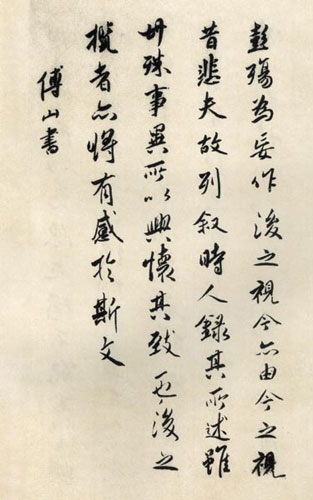 彭殤為妄作後之視今亦由今之視
昔悲夫故列叙時人錄其所述雖
世殊事異所以興懷其致一也後之
攬者亦將有感於斯文
傅山書